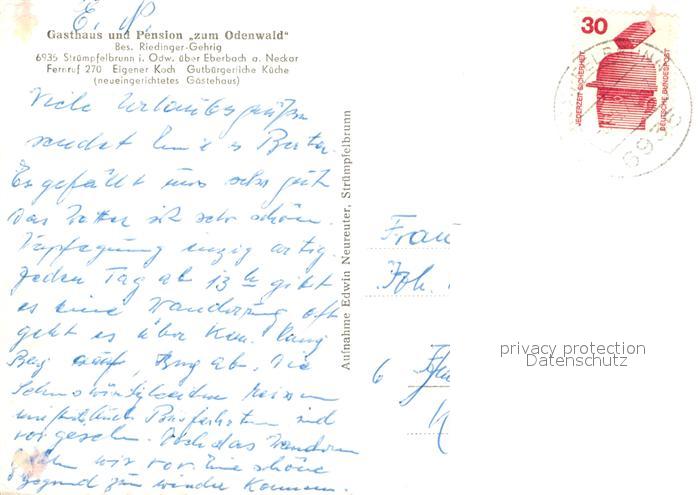 E. P.
Gasthaus und Pension „zum Odenwald"
Bes. Riedinger-Gehrig
6935 Strümpfelbrunn i. Odw. über Eberbach a. Neckar
Fernruf 270 Eigener Koch Gutbürgerliche Küche
(neueingerichtetes Gästehaus)
Viele Urlaubsgrüßen
sendet
Es gefällt uns sehr gut
Das Wetter ist sehr schön.
Verpflegung einzig artig.
Jeden Tag ab 13 h gibt
es eine Wanderung oft
geht es über Km. lang
Berg auf, Berg ab. Die
Sehnswürdigkeiten
Busfahrten sind
vorgesehn. Doch das Wandern
wir vor. Eine schöne
Gegend zum wieder kommen.
Aufnahme Edwin Neureuter, Strümpfelbrunn
30
JEDERZEIT SICHERHEIT
DEUTSCHE BUNDESPOST
6935
Frau
Joh.
6
privacy protection
Datenschutz